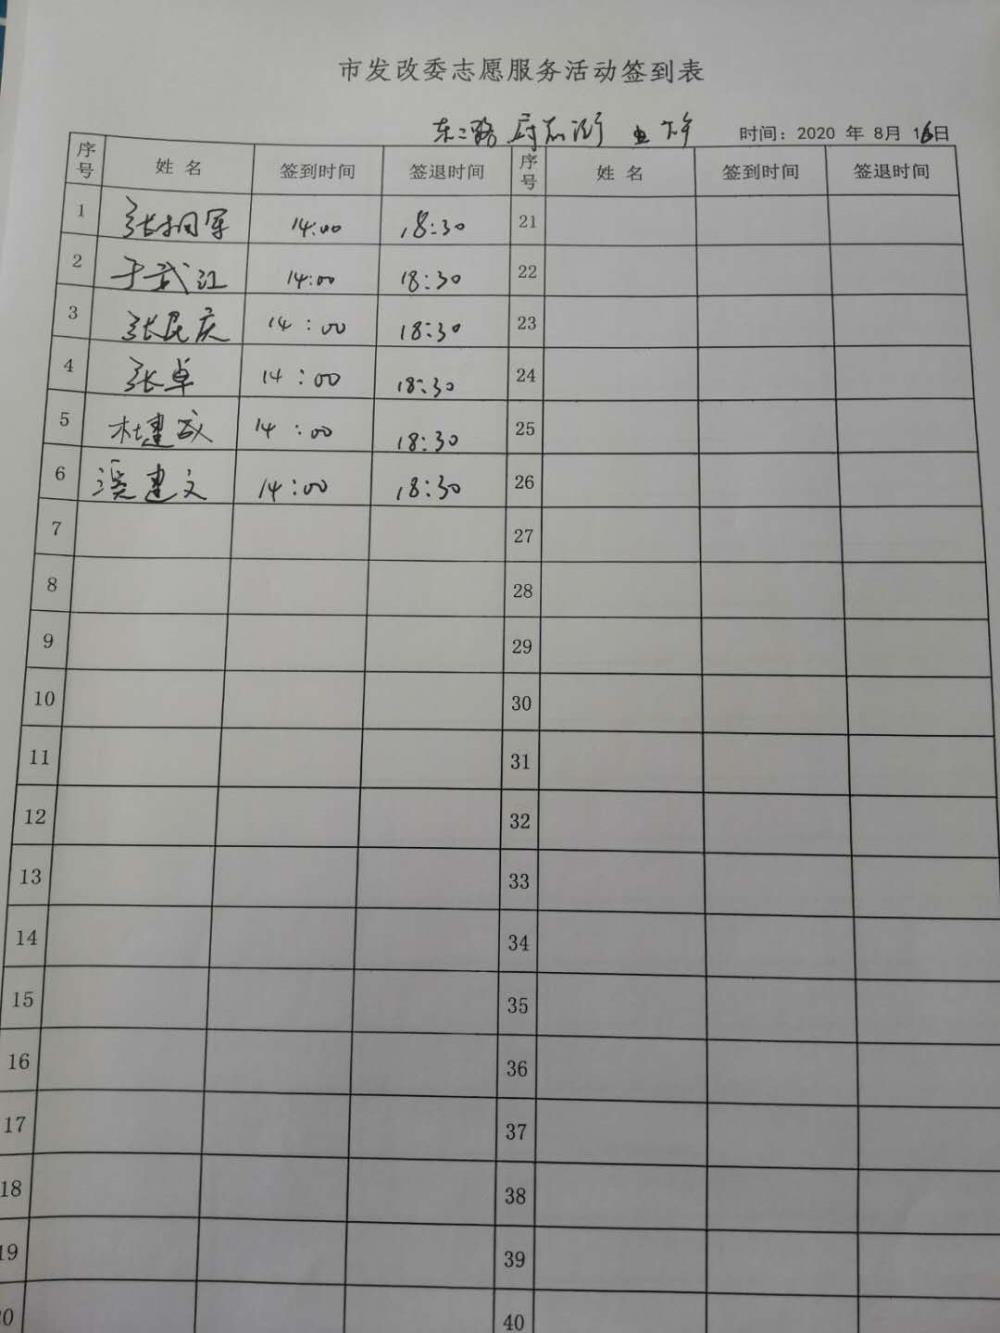 市发改委志愿服务活动签到表
东二路 府 街 时间：2020 年 8月 16日
序号 姓 名 签到时间 签退时间 序号 姓 名 签到时间 签退时间
1 张 军 14:00 18:30 21
2 于武江 14:00 18:30 22
3 张昆庆 14:00 18:30 23
4 张卓 14:00 18:30 24
5 杜建 14:00 18:30 25
6 建文 14:00 18:30 26
7 27
8 28
9 29
10 30
11 31
12 32
13 33
14 34
15 35
16 36
17 37
18 38
19 39
20 40